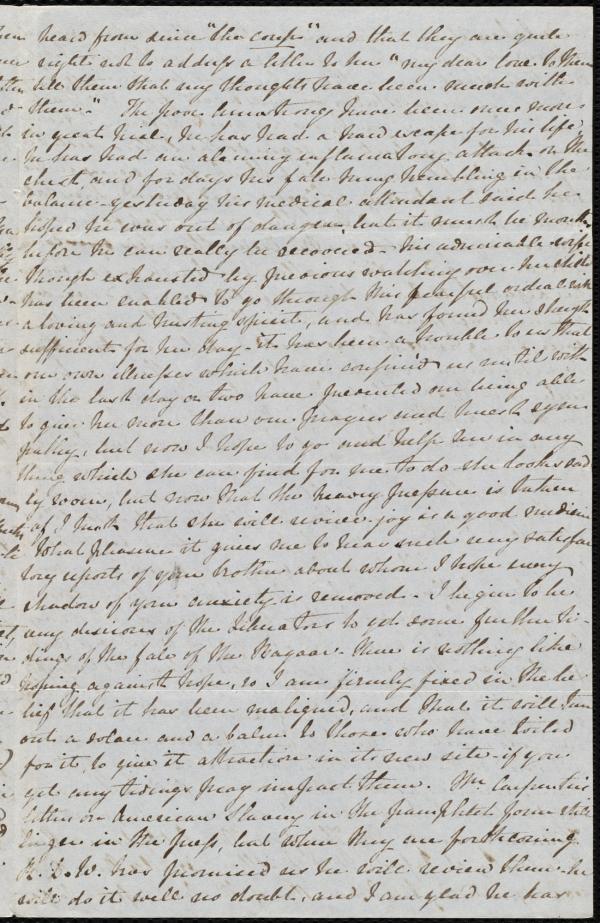 heard from since "the coup" and that they are quite
right not to address a letter to her "my dear love. to them
tell them that my thoughts have been much with
them." The poor Armstrongs have been once more
in great trial, he has had a hard escape for his life,
he has had an alarming inflammatory attack on the
chest, and for days his fate hung trembling in the
balance - yesterday his medical attendant said he
hoped he was out of danger, but it must be months
before he can really be recovered - his admirable wife
though exhausted by previous watching over her child
has been enabled to go through this fearful ordeal with
a loving and trusting spirit, and has found her strength
sufficient for her day - it has been a trouble to us that
our own illnesses which have confin'd us until with
in the last day or two have prevented our being able
to give her more than our prayers and much sym
pathy, but now I hope to go and help her in any
thing which she can find for me to do - she looks sad
ly worn, but now that the heavy pressure is taken
off, I trust that she will revive - joy is a good medicine
What pleasure it gives me to hear such very satisfac
tory reports of your brother about whom I hope every
shadow of your anxiety is removed - I begin to be
very desirous of the Liberators to get some further ti-
dings of the fate of the Bazaar. there is nothing like
hoping against hope, so I am firmly fixed in the be
lief that it has been maligned, and that it will turn
out a solace and a balm to those who have toiled
for it, to give it attraction in its new site - if you
get any tidings pray impart them. Mr. Carpenter's
letters on American Slavery in the pamphlet form still
linger in the press, but when they are forthcoming
R. D. W. has promised us he will review them - he
will do it well no doubt, and I am glad he has